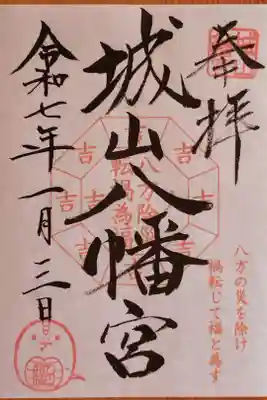 奉拝
八方の災を除け
禍転じて福と為す
城山八幡宮
八方除災
転禍為福
吉
吉
吉
吉
吉
吉
令和七年一月三日